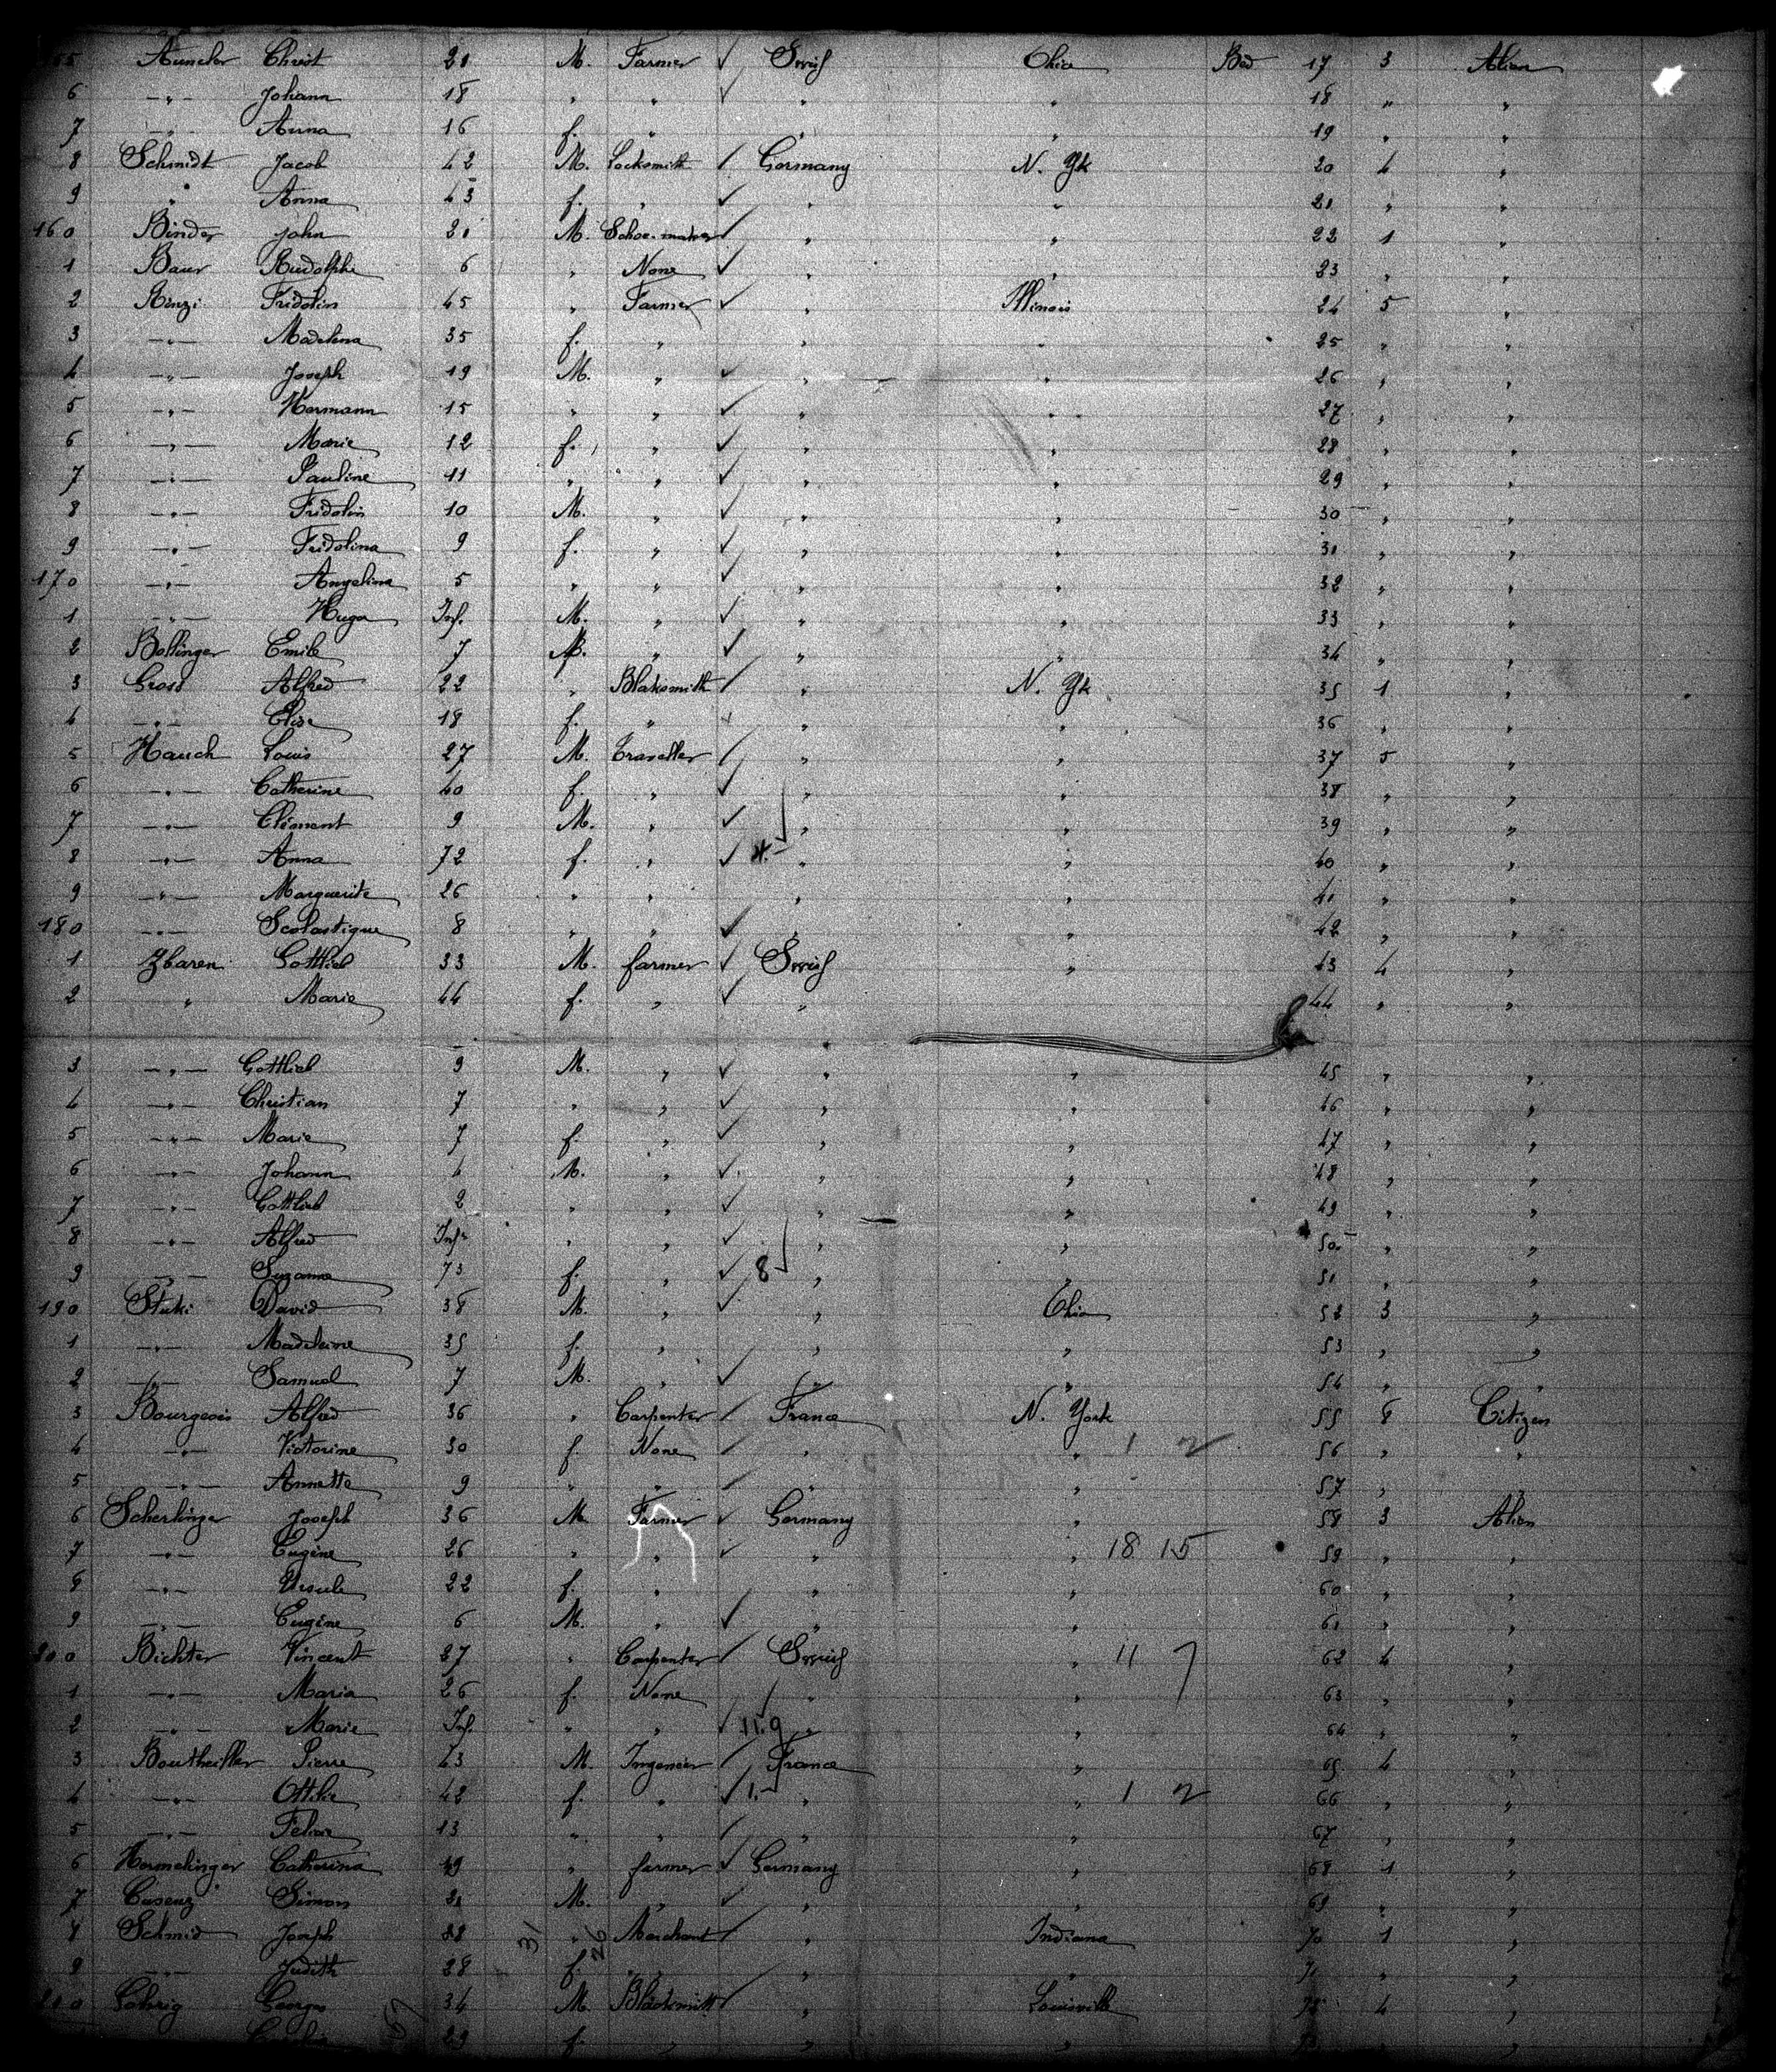 55 Christ 21 M. Farmer ✓ Swiss Ohio Bed 17 3 Alien
6 —„— Johann 18 „ „ ✓ „ „ 18 „ „
7 —„— Anna 16 f. „ „ „ 19 „ „
8 Schmidt Jacob 42 M. Locksmith / Germany N. Yk 20 4 „
9 „ Anna 43 f. „ ✓ „ „ 21 „ „
160 Binder John 21 M. Schoe-maker / „ „ 22 1 „
1 Baur Rudolphe 6 „ None ✓ „ „ 23 „ „
2 Kinzi Fridolin 45 „ Farmer ✓ „ Illinois 24 5 „
3 —„— Madelena 35 f. „ „ „ 25 „ „
4 —„— Joseph 19 M. „ ✓ „ „ 26 „ „
5 —„— Hermann 15 „ „ ✓ „ „ 27 „ „
6 —„— Marie 12 f. „ ✓ „ „ 28 „ „
7 —„— Pauline 11 „ „ ✓ „ „ 29 „ „
8 —„— Fridolin 10 M. „ ✓ „ „ 30 „ „
9 —„— Fridolina 9 f. „ ✓ „ „ 31 „ „
170 —„— Angelina 5 „ „ ✓ „ „ 32 „ „
1 —„— Hugo Inf. M. „ ✓ „ „ 33 „ „
2 Bollinger Emile 7 M. „ ✓ „ „ 34 „ „
3 Gross Alfred 22 „ Blaksmith / „ N. Yk 35 1 „
4 —„— Elise 18 f. „ ✓ „ „ 36 „ „
5 Hauch Louis 27 M. Traveller / „ „ 37 5 „
6 —„— Catherine 40 f. „ ✓ „ „ 38 „ „
7 —„— Clément 9 M. „ ✓ „ „ 39 „ „
8 —„— Anna 72 f. „ ✓ „ „ 40 „ „
9 —„— Marguerite 26 „ „ „ „ 41 „ „
180 —„— Scolastique 8 „ „ ✓ „ „ 42 „ „
1 Zbaren Gottlieb 33 M. farmer ✓ Swiss „ 43 4 „
2 „ Marie 44 f. „ ✓ „ 44 „ „
3 —„— Gottlieb 9 M. „ ✓ „ „ 45 „ „
4 —„— Christian 7 „ „ ✓ „ „ 46 „ „
5 —„— Marie 7 f. „ ✓ „ „ 47 „ „
6 —„— Johann 4 M. „ ✓ „ „ 48 „ „
7 —„— Gottlieb 2 „ „ ✓ „ „ 49 „ „
8 —„— Alfred Inf. „ „ ✓ „ „ 50 „ „
9 —„— Suzanne 73 f. „ ✓ 8 „ „ 51 „ „
190 Stuki David 38 M. „ ✓ „ Ohio 52 3 „
1 —„— Madeleine 35 f. „ „ „ 53 „ „
2 —„— Samuel 7 M. „ ✓ „ „ 54 „ „
3 Bourgeois Alfred 36 „ Carpenter / France N. York 55 8 Citizen
4 —„— Victorine 30 f. None / „ „ 1 2 56 „ „
5 —„— Annette 9 „ „ / „ „ 57 „ „
6 Scherlinger Joseph 36 M Farmer ✓ Germany „ 58 3 Alien
7 —„— Eugène 26 „ „ ✓ „ „ 18 15 59 „ „
8 —„— Ursule 22 f. „ „ „ 60 „ „
9 —„— Eugène 6 M. „ ✓ „ „ 61 „ „
200 Bichter Vincent 27 „ Carpenter / Swiss „ 11 7 62 4 „
1 —„— Maria 26 f. None „ „ 63 „ „
2 —„— Marie Inf. „ „ ✓ 11.9 „ „ 64 „ „
3 Boutheiller Pierre 43 M. Ingenier / France „ 65 4 „
4 —„— Ottilie 42 f. „ ✓ 1. „ „ 1 2 66 „ „
5 —„— 13 „ „ / „ „ 67 „ „
6 Catherina 49 „ farmer ✓ Germany „ 68 1 „
7 Simon M. „ ✓ „ „ 69 „ „
8 Schmid Joseph 28 31 „ 26 Marchant / „ Indiana 70 1 „
9 —„— Judith 28 f. „ „ „ 71 „ „
210 George 34 M. Blacksmith / „ Louisville 72 4 „
29 f. „ „